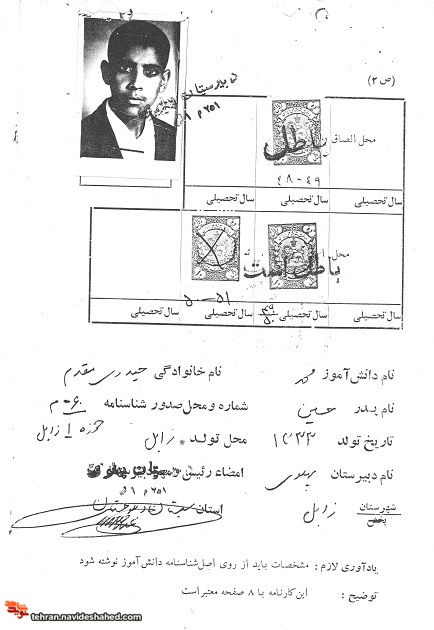 (ص ۲)
دبیرستان
۲۵۱ م ۱
محل الصاق
باطل
۴۸-۴۹
سال تحصیلی سال تحصیلی سال تحصیلی
محل
باطل است
۴۹
۵۰
۵۰-۵۱
سال تحصیلی سال تحصیلی سال تحصیلی سال تحصیلی
نام دانش آموز محمد نام خانوادگی حیدری مقدم
نام پدر حسین شماره و محل صدور شناسنامه ۶۰-م
حوزه ۱ زابل
تاریخ تولد ۱۳۳۲ محل تولد زابل
نام دبیرستان پهلوی امضاء رئیس و مهر دبیرستان
۲۵۱ م ۱
شهرستان زابل استان سیستان و بلوچستان
بخش
یادآوری لازم : مشخصات باید از روی اصل شناسنامه دانش آموز نوشته شود
توضیح : این کارنامه با ۸ صفحه معتبر است
tehran.navideshahed.com